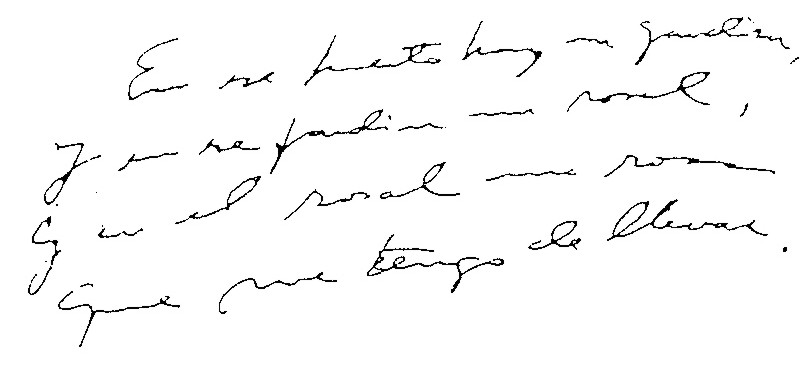 En ese huerto hay un jardin,
y en ese jardin un rosal,
y en el rosal una rosa
que me tengo de llevar.